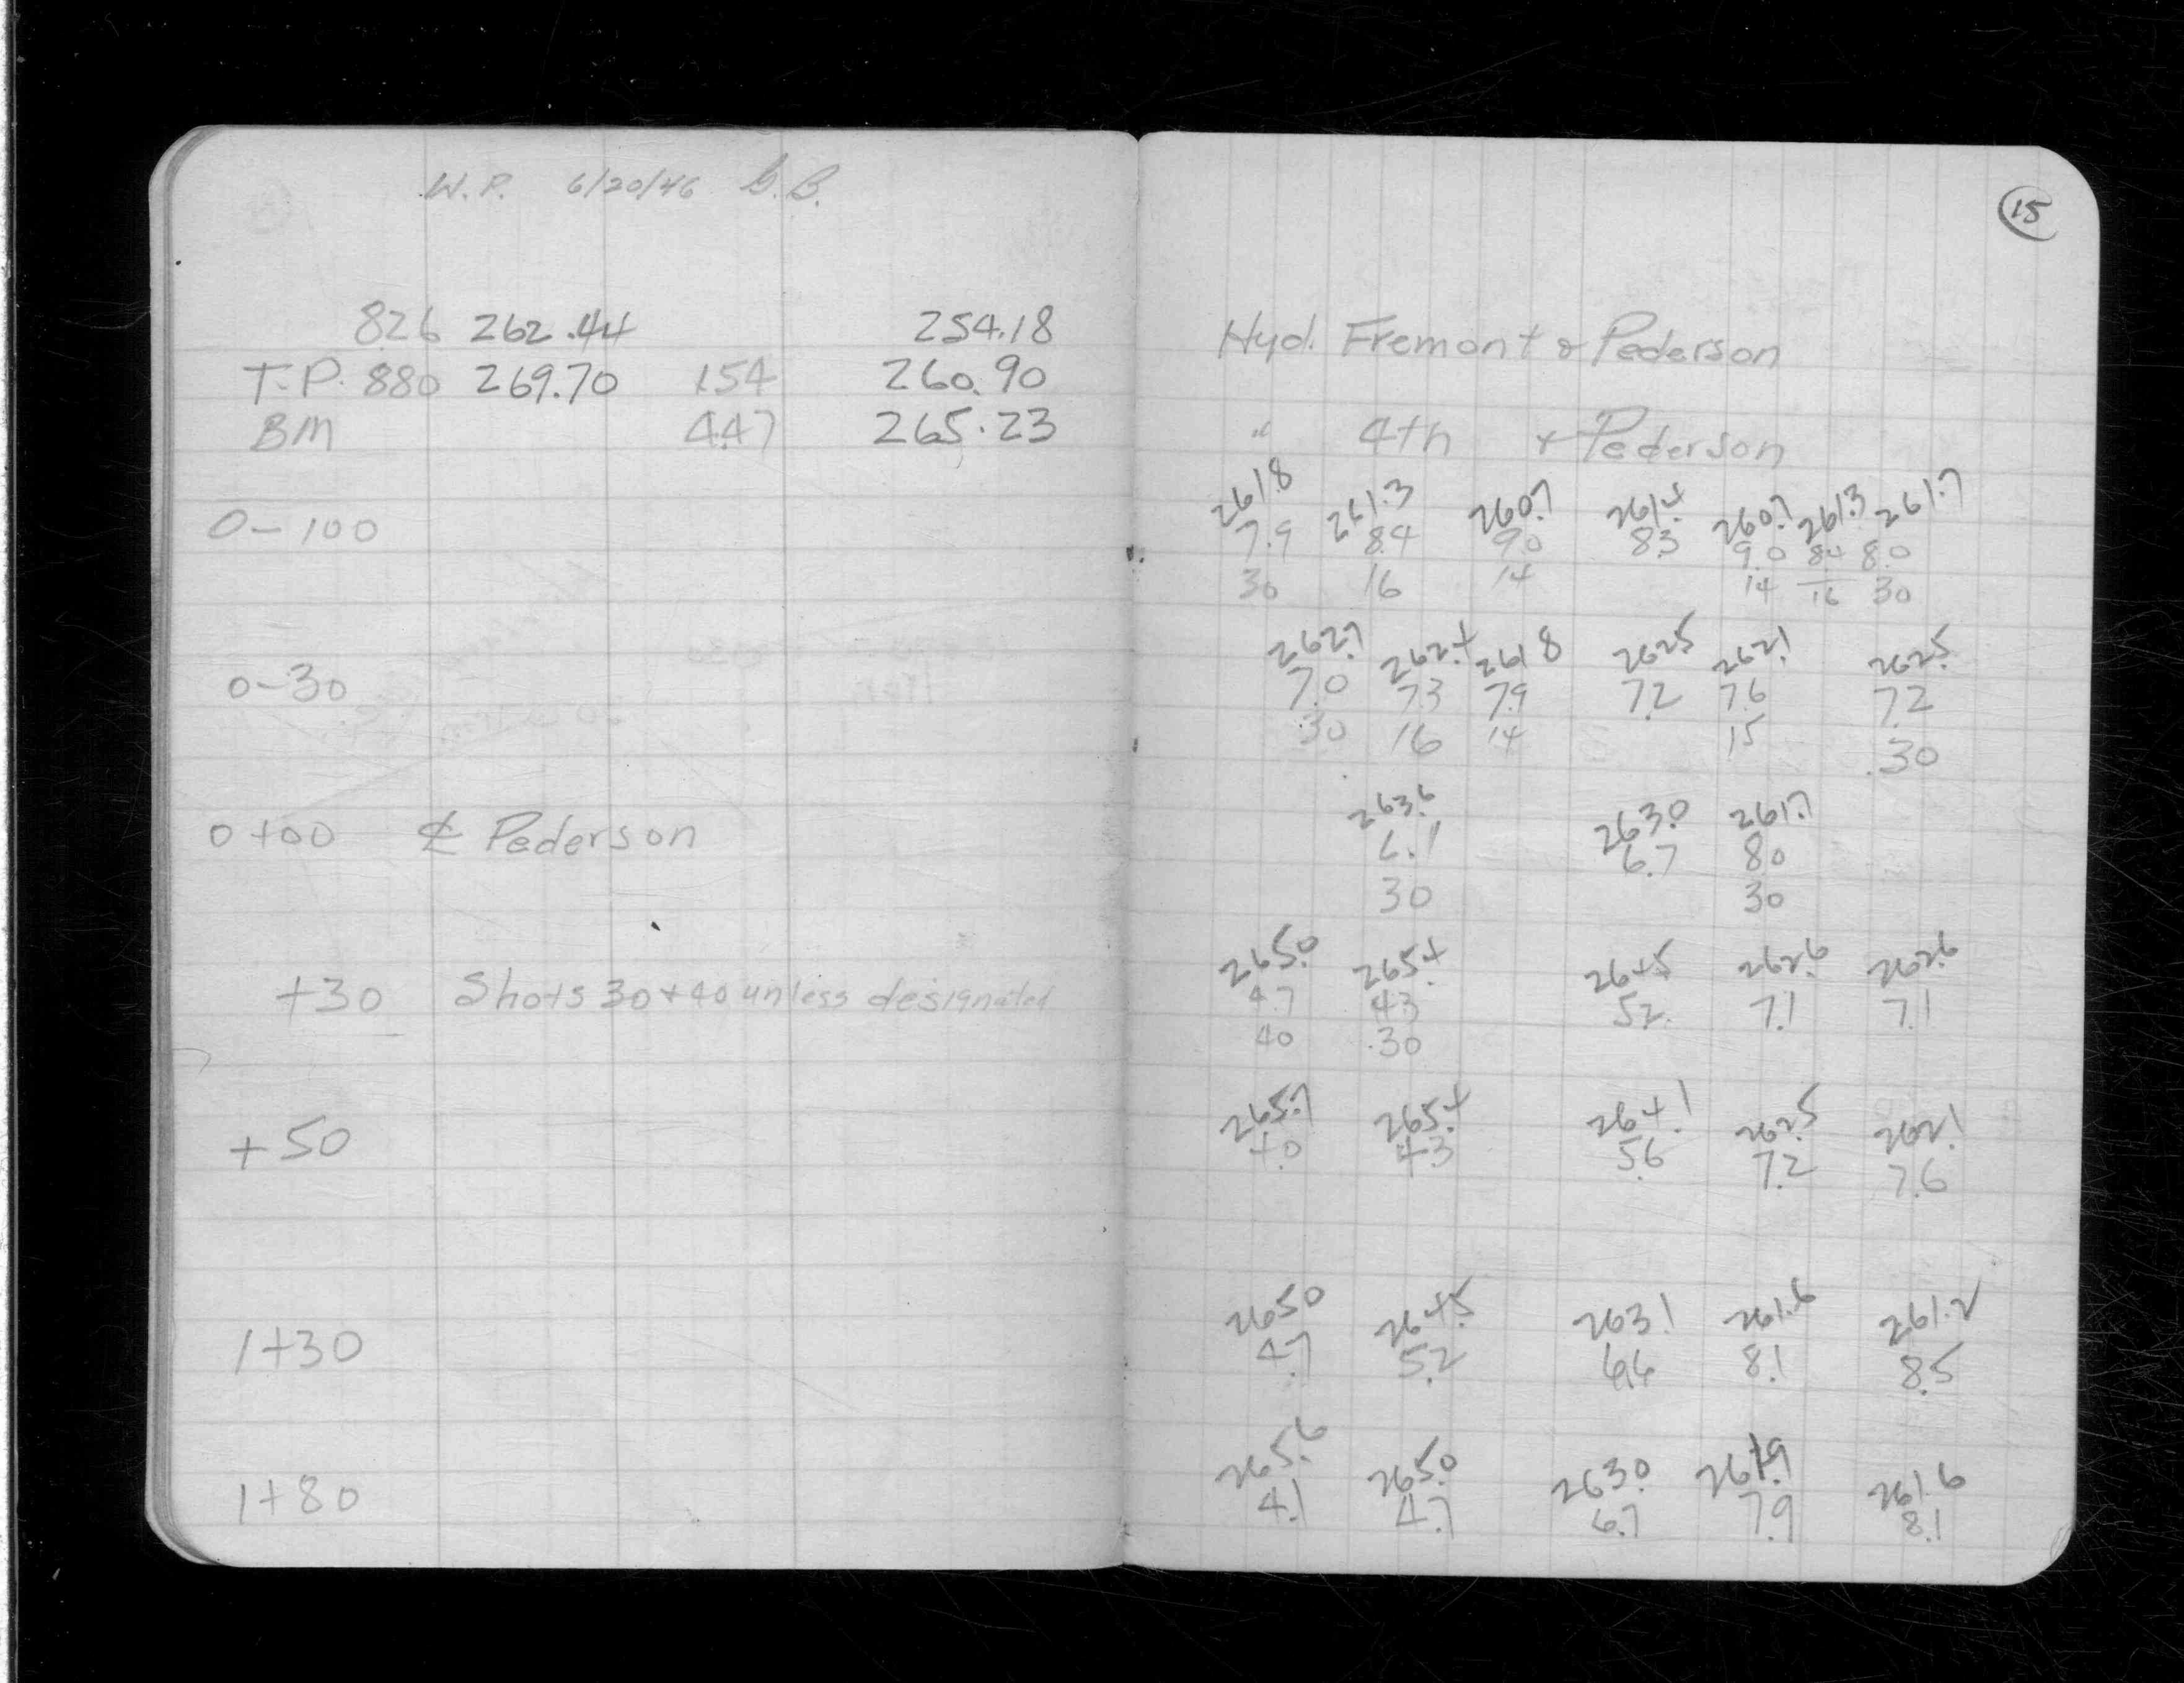 W.P. 6/20/46 G.B.
15
826 262.44 254.18 Hyd. Fremont & Pederson
T.P. 880 269.70 1.54 260.90
BM 4.47 265.23 " 4th & Pederson
261.8 261.3 260.7 261.4 260.7 261.3 261.7
0-100 7.9 8.4 9.0 8.3 9.0 8.4 8.0
30 16 14 14 16 30
262.7 262.4 261.8 262.5 262.1 262.5
0-30 7.0 7.3 7.9 7.2 7.6 7.2
30 16 14 15 30
263.6 263.0 261.7
0+00 ℄ Pederson 6.1 6.7 8.0
30 30
265.0 265.4 264.5 262.6 262.6
+30 Shots 30+40 unless designated 4.7 4.3 5.2 7.1 7.1
40 30
265.7 265.4 264.1 262.5 262.1
+50 4.0 4.3 5.6 7.2 7.6
265.0 264.5 263.1 261.6 261.2
1+30 4.7 5.2 6.6 8.1 8.5
265.6 265.0 263.0 261.9 261.6
1+80 4.1 4.7 6.7 7.9 8.1